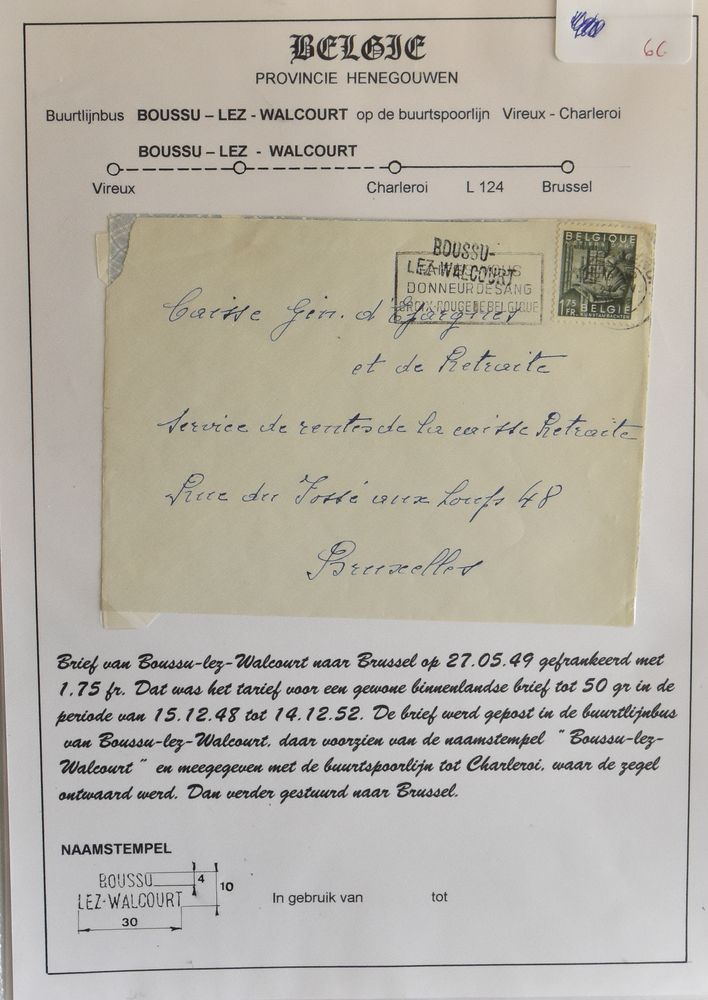 6C
BELGIE
PROVINCIE HENEGOUWEN
Buurtlijnbus BOUSSU – LEZ - WALCOURT op de buurtspoorlijn Vireux - Charleroi
BOUSSU – LEZ - WALCOURT
Vireux Charleroi L 124 Brussel
BOUSSU-
LEZ-WALCOURT
DONNEUR DE SANG
CROIX-ROUGE DE BELGIQUE
BELGIQUE
METIERS D'ART
1.75
FR.
BELGIE
KUNSTAMBACHTEN
Caisse Gén. d'Epargnes
et de Retraite
Service de rentes de la caisse Retraite
Rue du Fossé aux Loups 48
Bruxelles
Brief van Boussu-lez-Walcourt naar Brussel op 27.05.49 gefrankeerd met
1.75 fr. Dat was het tarief voor een gewone binnenlandse brief tot 50 gr in de
periode van 15.12.48 tot 14.12.52. De brief werd gepost in de buurtlijnbus
van Boussu-lez-Walcourt, daar voorzien van de naamstempel " Boussu-lez-
Walcourt " en meegegeven met de buurtspoorlijn tot Charleroi, waar de zegel
ontwaard werd. Dan verder gestuurd naar Brussel.
NAAMSTEMPEL
BOUSSU
LEZ-WALCOURT
4
10
30
In gebruik van tot